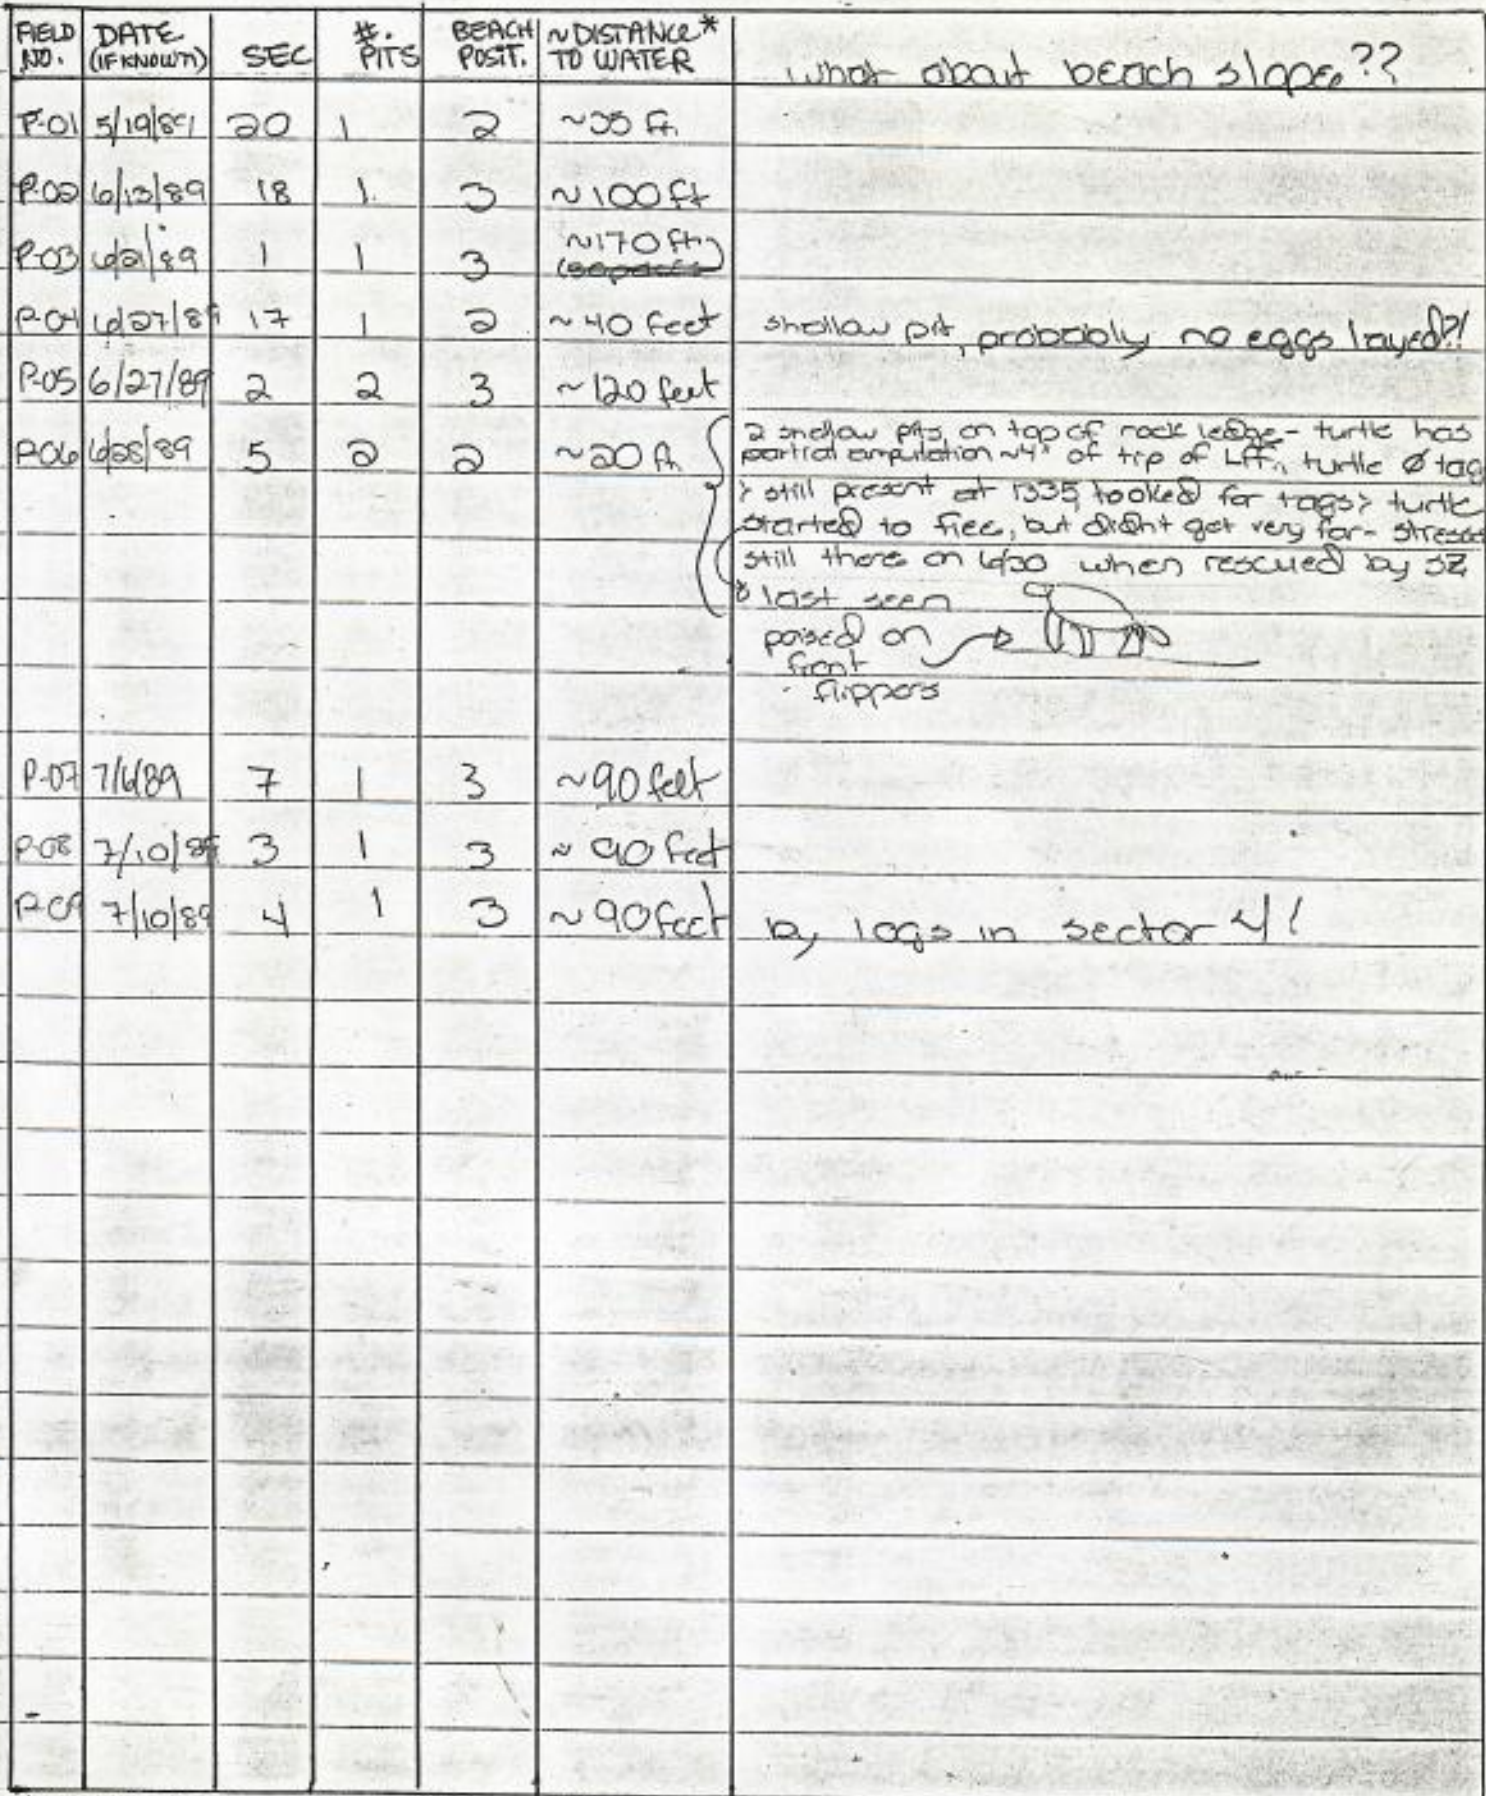 FIELD NO. DATE (IF KNOWN) SEC #. PITS BEACH POSIT. ~DISTANCE* TO WATER what about beach slope??
P-01 5/19/89 20 1 2 ~35 ft.
P-02 6/13/89 18 1 3 ~100 ft
P-03 6/21/89 1 1 3 ~170 ft
P-04 6/27/89 17 1 2 ~40 feet shallow pit, probably no eggs layed?!
P-05 6/27/89 2 2 3 ~120 feet
P-06 6/28/89 5 2 2 ~20 ft
2 shallow pits on top of rock ledge - turtle has
partial amputation ~4" of tip of LFF, turtle Ø tag
still present at 1335, looked for tags, turtle
started to flee, but didnt get very far - stressed
still there on 6/30 when rescued by SZ
& last seen
poised on
front
flippers
P-07 7/6/89 7 1 3 ~90 feet
P-08 7/10/89 3 1 3 ~90 feet
P-09 7/10/89 4 1 3 ~90 feet by logs in sector 4!